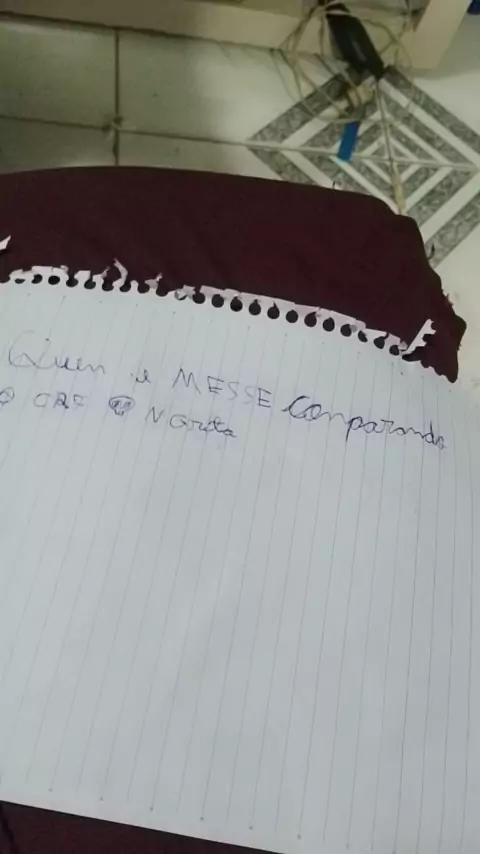 Quen e MESSE conparando
O CR7 N Grita